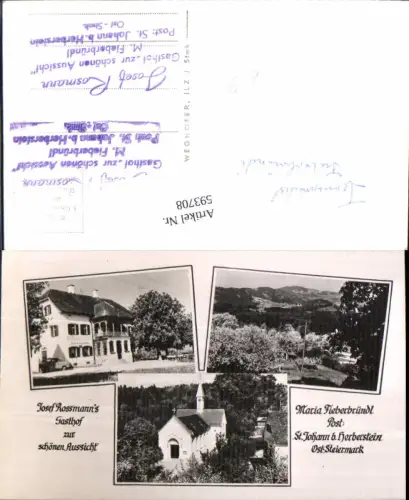 Josef Rosmann
Gasthof „zur schönen Aussicht"
M. Fieberbründl
Post: St. Johann b. Herberstein
Ost - Stmk.
Gasthof „zur schönen Aussicht"
M. Fieberbründl
Post: St. Johann b. Herberstein
Ost - Stmk.
WEGHOFER, ILZ / Stmk
Artikel Nr.
593708
Josef Rossmann's
Gasthof
zur
schönen Aussicht
Maria Fieberbründl
Post:
St. Johann b. Herberstein
Ost-Steiermark